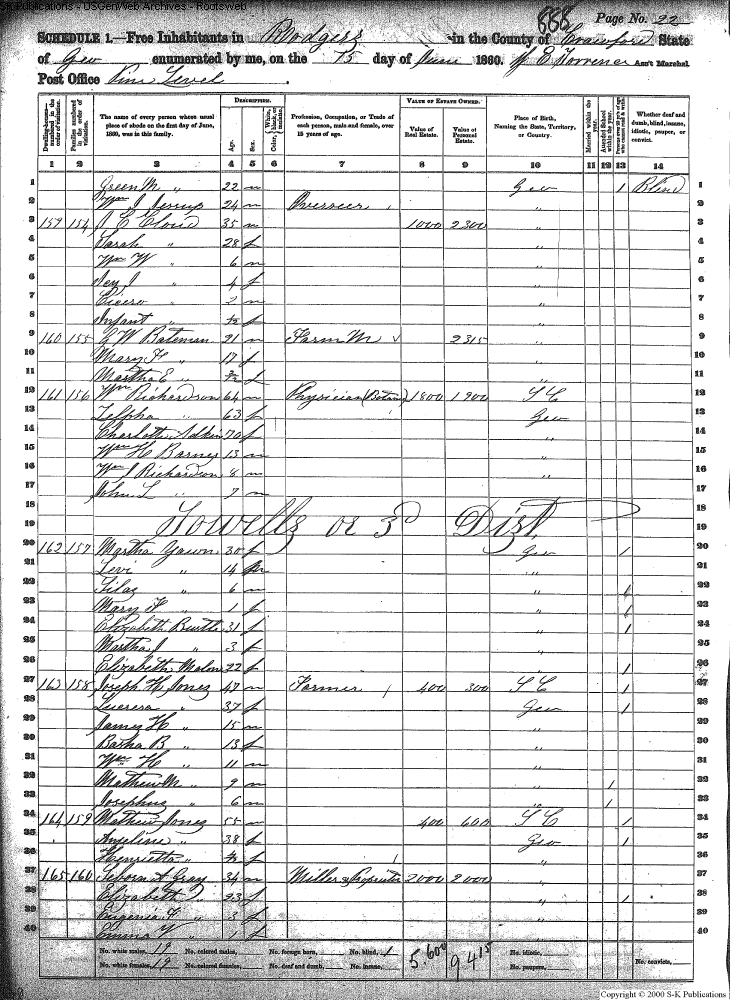 S-K Publications - USGenWeb Archives - Rootsweb
888 Page No. 22
SCHEDULE 1.—Free Inhabitants in Rodgers in the County of Crawford State
of Geo enumerated by me, on the 15 day of June 1860. Ass't Marshal.
Post Office Pine Level.
DESCRIPTION. VALUE OF ESTATE OWNED.
Dwelling-houses—numbered in the order of visitation. Families numbered in the order of visitation. The name of every person whose usual place of abode on the first day of June, 1860, was in this family. Age. Sex. Color, White, black, or mulatto. Profession, Occupation, or Trade of each person, male and female, over 15 years of age. Value of Real Estate. Value of Personal Estate. Place of Birth, Naming the State, Territory, or Country. Married within the year. Attended School within the year. Whether deaf and dumb, blind, insane, idiotic, pauper, or convict.
1 2 3 4 5 6 7 8 9 10 11 12 13 14
1 Green M " 22 m Geo 1 Blind 1
2 Wm J Jessup 24 m Overseer " 2
3 159 154 J C Cloud 35 m 1000 2300 " 3
4 Sarah " 28 f " 4
5 Wm W " 6 m " 5
6 " 4 f " 6
7 Cicero " 2 m " 7
8 Infant " f " 8
9 160 155 G W Bateman 21 m Farm M 2315 " 9
10 Mary F " 17 f " 10
11 Martha E " f " 11
12 161 156 Wm Richardson 64 m Physician (Botanic) 1800 1900 S C 12
13 Zilpha " 63 f Geo 13
14 Charlotte Adkins 70 f " 14
15 Wm H Barnes 13 m " 15
16 Wm J Richardson 8 m " 16
17 John L " 7 m 17
18 18
19 Howells or 3d Dist. 19
20 162 157 Martha Yawn 30 f Geo 1 20
21 Levi " 14 m " 21
22 Silas " 6 m " 22
23 Mary F " 1 f " 23
24 Elizabeth 31 f " 1 24
25 Martha J " 3 f " 25
26 Elizabeth Malone 22 f " 1 26
27 163 158 Joseph H Jones 47 m Farmer 400 300 S C 1 27
28 " 37 f Geo 1 28
29 James H " 15 m " 29
30 B " 13 f " 30
31 Wm H " 11 m " 31
32 Mathew M " 9 m " 1 32
33 Josephus " 6 m " 1 33
34 164 159 Mathew Jones 55 m 400 600 S C 1 34
35 Angeline " 38 f Geo 1 35
36 Henrietta " f " 36
37 165 160 Seborn A Gray 34 m Miller & Proprietor 2000 2000 " 37
38 Elizabeth " 23 f " 1 38
39 Eugenia " 3 f " 39
40 Emma V " 1 f " 40
No. white males, 19 No. colored males, No. foreign born, No. blind, 1 5.600 9415 No. idiotic, No. convicts,
No. white females, 19 No. colored females, No. deaf and dumb, No. insane, No. paupers,
Copyright © 2000 S-K Publications